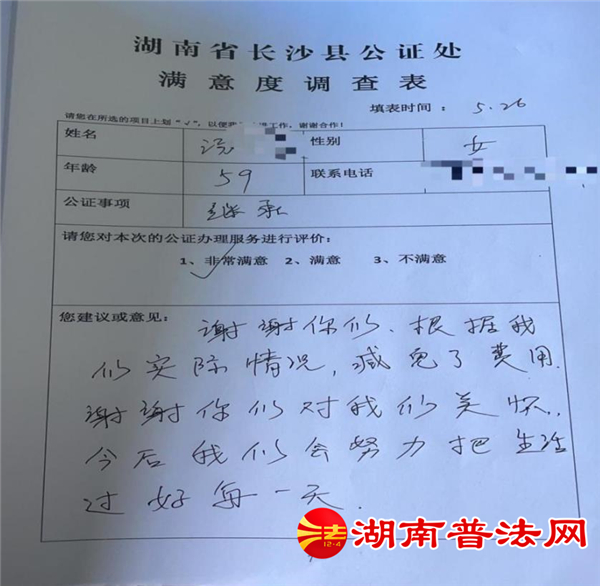 湖南省长沙县公证处
满意度调查表
填表时间：5.26
请您在所选的项目上划“√”，以便 工作，谢谢合作！
姓名 性别 女
年龄 59 联系电话
公证事项 继承
请您对本次的公证办理服务进行评价：
1、非常满意 2、满意 3、不满意
您建议或意见： 谢谢你们、根据我
们实际情况，减免了费用
谢谢你们对我们关怀，
今后我们会努力把生活
过好每一天.
法
12·4
湖南普法网